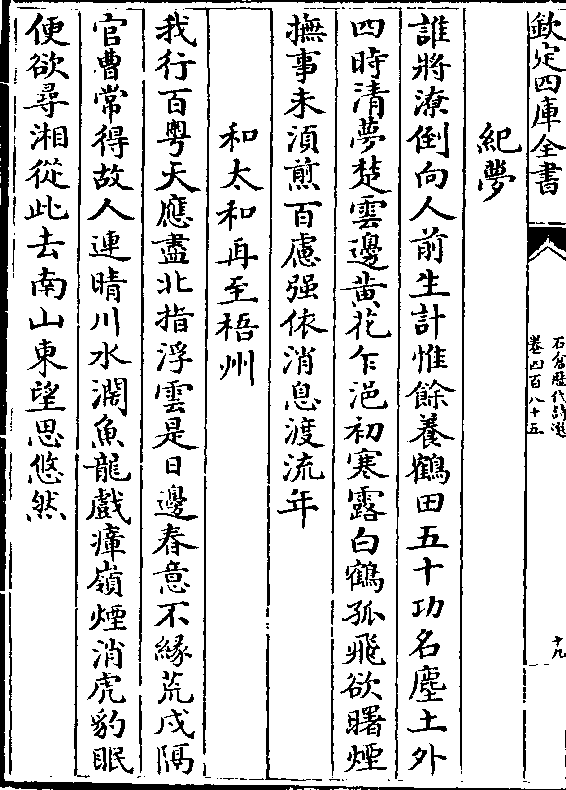 欽定四庫全書
石倉歷代詩選
卷四百八十五
十九
紀夢
誰將潦倒向人前生計惟餘養鶴田五十功名塵土外
四時清夢楚雲邊黄花乍浥初寒露白鶴孤飛欲曙煙
撫事未須煎百慮强依消息渡流年
和太和再至梧州
我行百粤天應盡北指浮雲是日邊春意不緣荒戍隔
官曹常得故人連晴川水濶魚龍戲瘴嶺煙消虎豹眠
便欲尋湘從此去南山東望思悠然